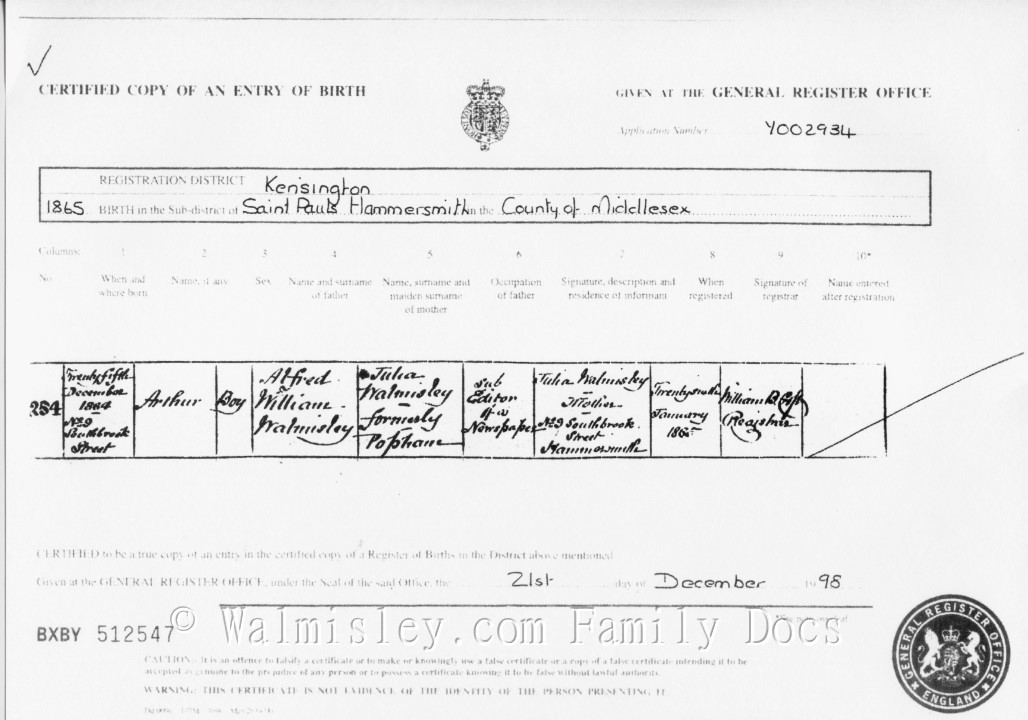 CERTIFIED COPY OF AN ENTRY OF BIRTH
GIVEN AT THE GENERAL REGISTER OFFICE
Application Number Y002934
REGISTRATION DISTRICT Kensington
1865 BIRTH in the Sub-district of Saint Pauls Hammersmith in the County of Middlesex
Columns: 1 2 3 4 5 6 7 8 9 10*
No. When and where born Name, if any Sex Name and surname of father Name, surname and maiden surname of mother Occupation of father Signature, description and residence of informant When registered Signature of registrar Name entered after registration
284
Twenty fifth
December
1864
No 9
Southbrook
Street
Arthur
Boy
Alfred
William
Walmisley
Julia
Walmisley
formerly
Popham
Sub
Editor
of a
Newspaper
Julia Walmisley
Mother
No 9 Southbrook
Street
Hammersmith
January
1865
William
Registrar
CERTIFIED to be a true copy of an entry in the certified copy of a Register of Births in the District above mentioned
Given at the GENERAL REGISTER OFFICE, under the Seal of the said Office, the 21st day of December 1998
© Walmisley.com Family Docs
BXBY 512547
CAUTION: It is an offence to falsify a certificate or to make or knowingly use a false certificate or a copy of a false certificate intending it to be
accepted as genuine to the prejudice of any person or to possess a certificate knowing it to be false without lawful authority.
WARNING: THIS CERTIFICATE IS NOT EVIDENCE OF THE IDENTITY OF THE PERSON PRESENTING IT
GENERAL REGISTER OFFICE
ENGLAND